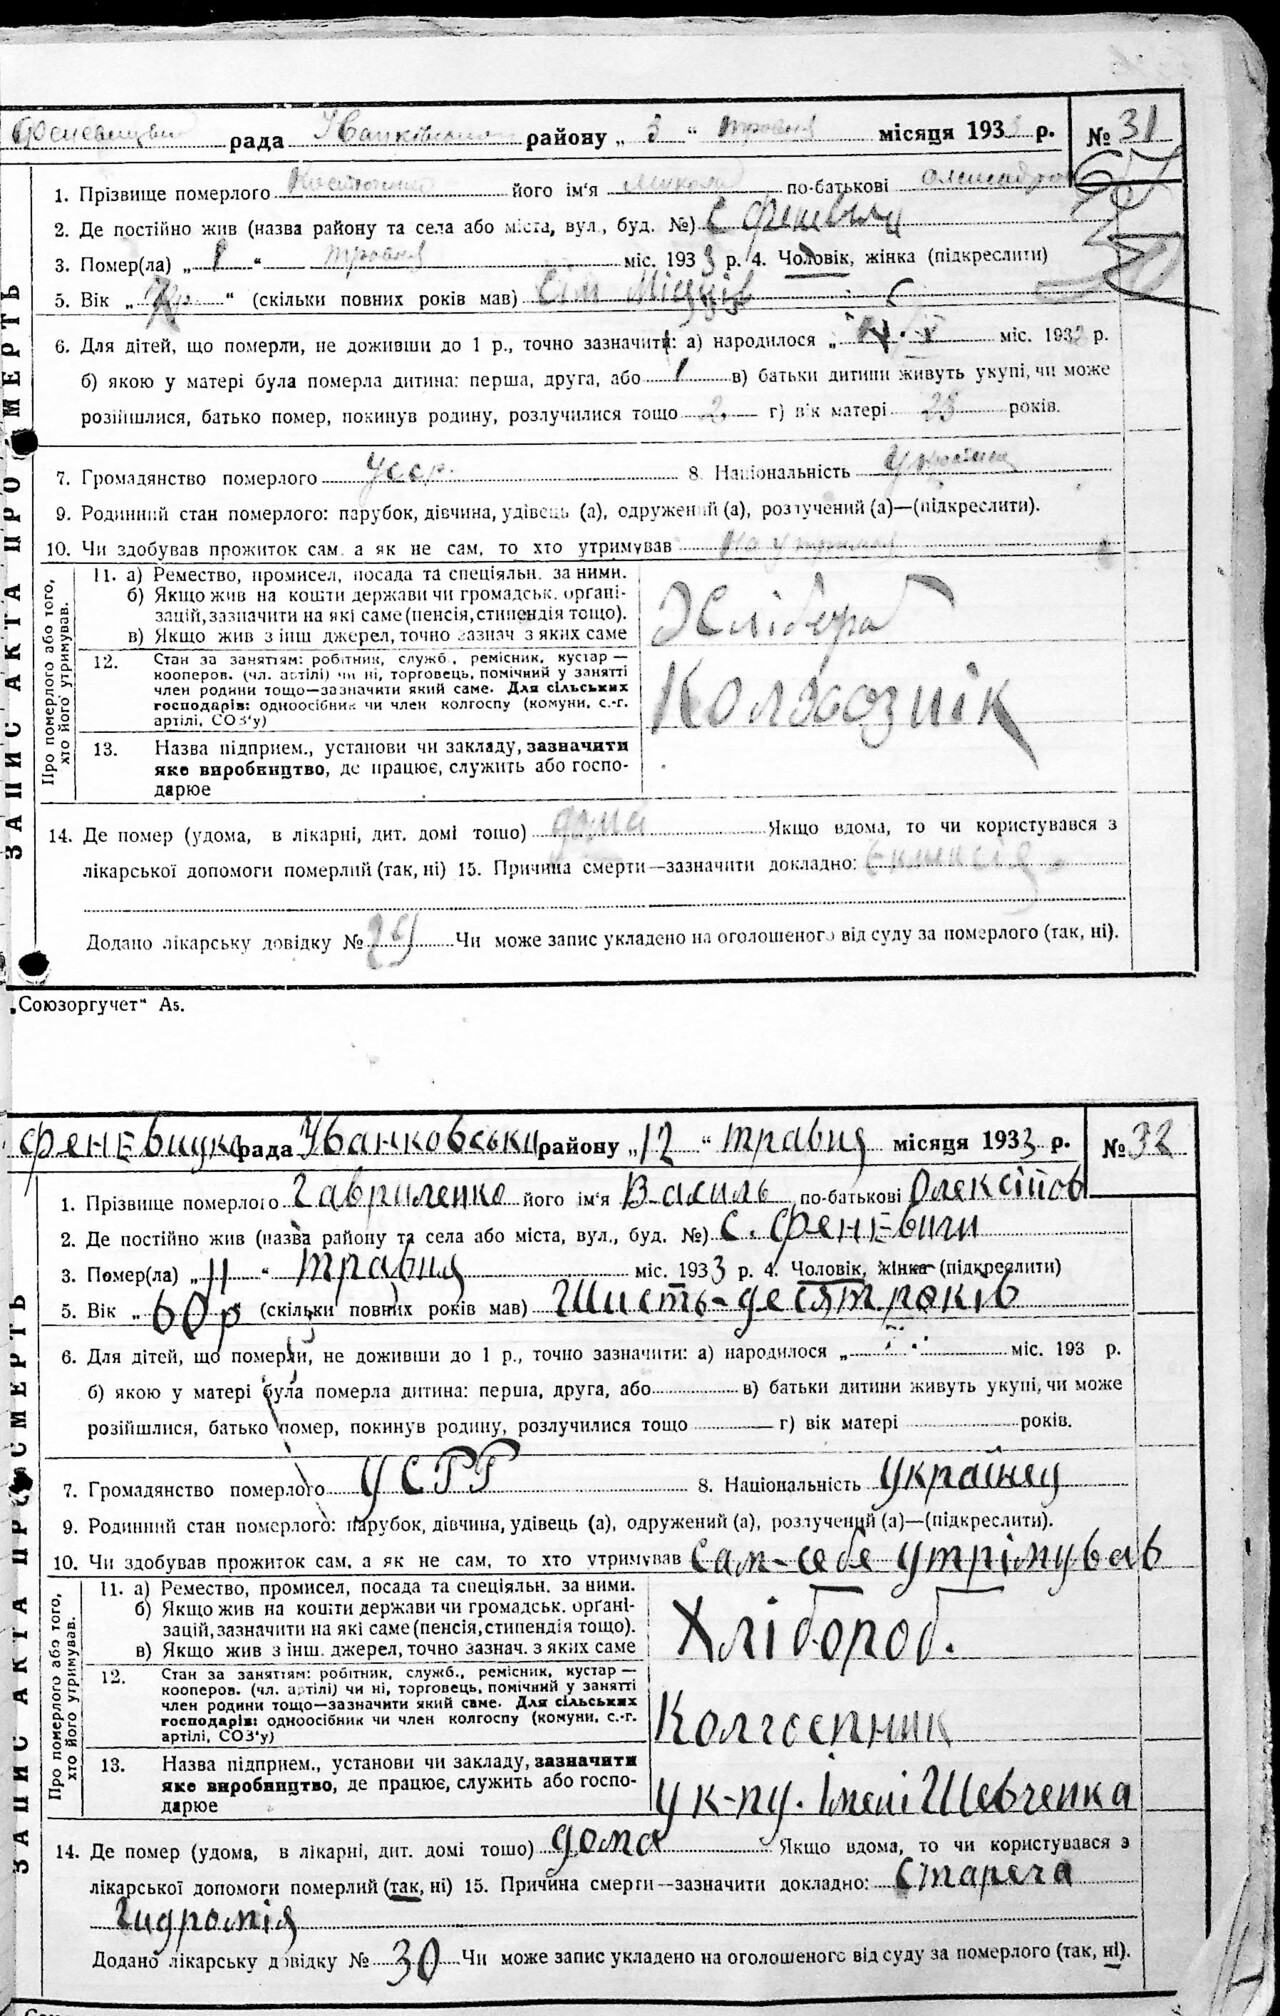 ЗАПИС АКТА ПРО СМЕРТЬ
рада району „ 3 “ травня місяця 1933 р. № 31
1. Прізвище померлого його ім'я Микола по-батькові Олександров
2. Де постійно жив (назва району та села або міста, вул., буд. №) С Феневичі
3. Помер(ла) „ 1 “ травня міс. 1933 р. 4. Чоловік, жінка (підкреслити)
5. Вік „ “ (скільки повних років мав) Сім Місяців
6. Для дітей, що померли, не доживши до 1 р., точно зазначити: а) народилося „ міс. 193 р.
б) якою у матері була померла дитина: перша, друга, або 1 в) батьки дитини живуть укупі, чи може
розійшлися, батько помер, покинув родину, розлучилися тощо 2. г) вік матері 25 років.
7. Громадянство померлого Усср. 8. Національність Україн
9. Родинний стан померлого: парубок, дівчина, удівець (а), одружений (а), розлучений (а)—(підкреслити).
10. Чи здобував прожиток сам, а як не сам, то хто утримував На утриман
Про померлого або того, хто його утримував.
11. а) Ремество, промисел, посада та спеціяльн. за ними.
б) Якщо жив на кошти держави чи громадськ. орґані-
зацій, зазначити на які саме (пенсія, стипендія тощо).
в) Якщо жив з інш джерел, точно зазнач з яких саме
Хлібороб
12. Стан за заняттям: робітник, служб., ремісник, кустар—
кооперов. (чл. артілі) чи ні, торговець, помічний у занятті
член родини тощо—зазначити який саме. Для сільських
господарів: одноосібник чи член колгоспу (комуни, с.-г.
артілі, СОЗ'у)
Колхознік
13. Назва підприєм., установи чи закладу, зазначити
яке виробництво, де працює, служить або госпо-
дарює
14. Де помер (удома, в лікарні, дит. домі тощо) дома Якщо вдома, то чи користувався з
лікарської допомоги померлий (так, ні) 15. Причина смерти—зазначити докладно: Еклинсія
Додано лікарську довідку № 29 Чи може запис укладено на оголошеного від суду за померлого (так, ні).
„Союзоргучет“ А5.
ЗАПИС АКТА ПРО СМЕРТЬ
Феневицка рада Іванковськи району „ 12 “ травня місяця 1933 р. № 32
1. Прізвище померлого Гавриленко його ім'я Василь по-батькові Олексійов
2. Де постійно жив (назва району та села або міста, вул., буд. №) С. Феневичи
3. Помер(ла) „ 11 “ травня міс. 1933 р. 4. Чоловік, жінка (підкреслити)
5. Вік „ 60 р (скільки повних років мав) Шисть-десят років
6. Для дітей, що померли, не доживши до 1 р., точно зазначити: а) народилося „ міс. 193 р.
б) якою у матері була померла дитина: перша, друга, або в) батьки дитини живуть укупі, чи може
розійшлися, батько помер, покинув родину, розлучилися тощо г) вік матері років.
7. Громадянство померлого УСРР 8. Національність Українец
9. Родинний стан померлого: парубок, дівчина, удівець (а), одружений (а), розлучений (а)—(підкреслити).
10. Чи здобував прожиток сам, а як не сам, то хто утримував Сам-себе утрімував
Про померлого або того, хто його утримував.
11. а) Ремество, промисел, посада та спеціяльн. за ними.
б) Якщо жив на кошти держави чи громадськ. орґані-
зацій, зазначити на які саме (пенсія, стипендія тощо).
в) Якщо жив з інш. джерел, точно зазнач. з яких саме
Хлібороб.
12. Стан за заняттям: робітник, служб., ремісник, кустар—
кооперов. (чл. артілі) чи ні, торговець, помічний у занятті
член родини тощо—зазначити який саме. Для сільських
господарів: одноосібник чи член колгоспу (комуни, с.-г.
артілі, СОЗ'у)
Колгоспник
13. Назва підприєм., установи чи закладу, зазначити
яке виробництво, де працює, служить або госпо-
дарює
у к-пу. Імені Шевченка
14. Де помер (удома, в лікарні, дит. домі тощо) дома Якщо вдома, то чи користувався з
лікарської допомоги померлий (так, ні) 15. Причина смерти—зазначити докладно: Стареча
Гидромія
Додано лікарську довідку № 30 Чи може запис укладено на оголошеного від суду за померлого (так, ні).